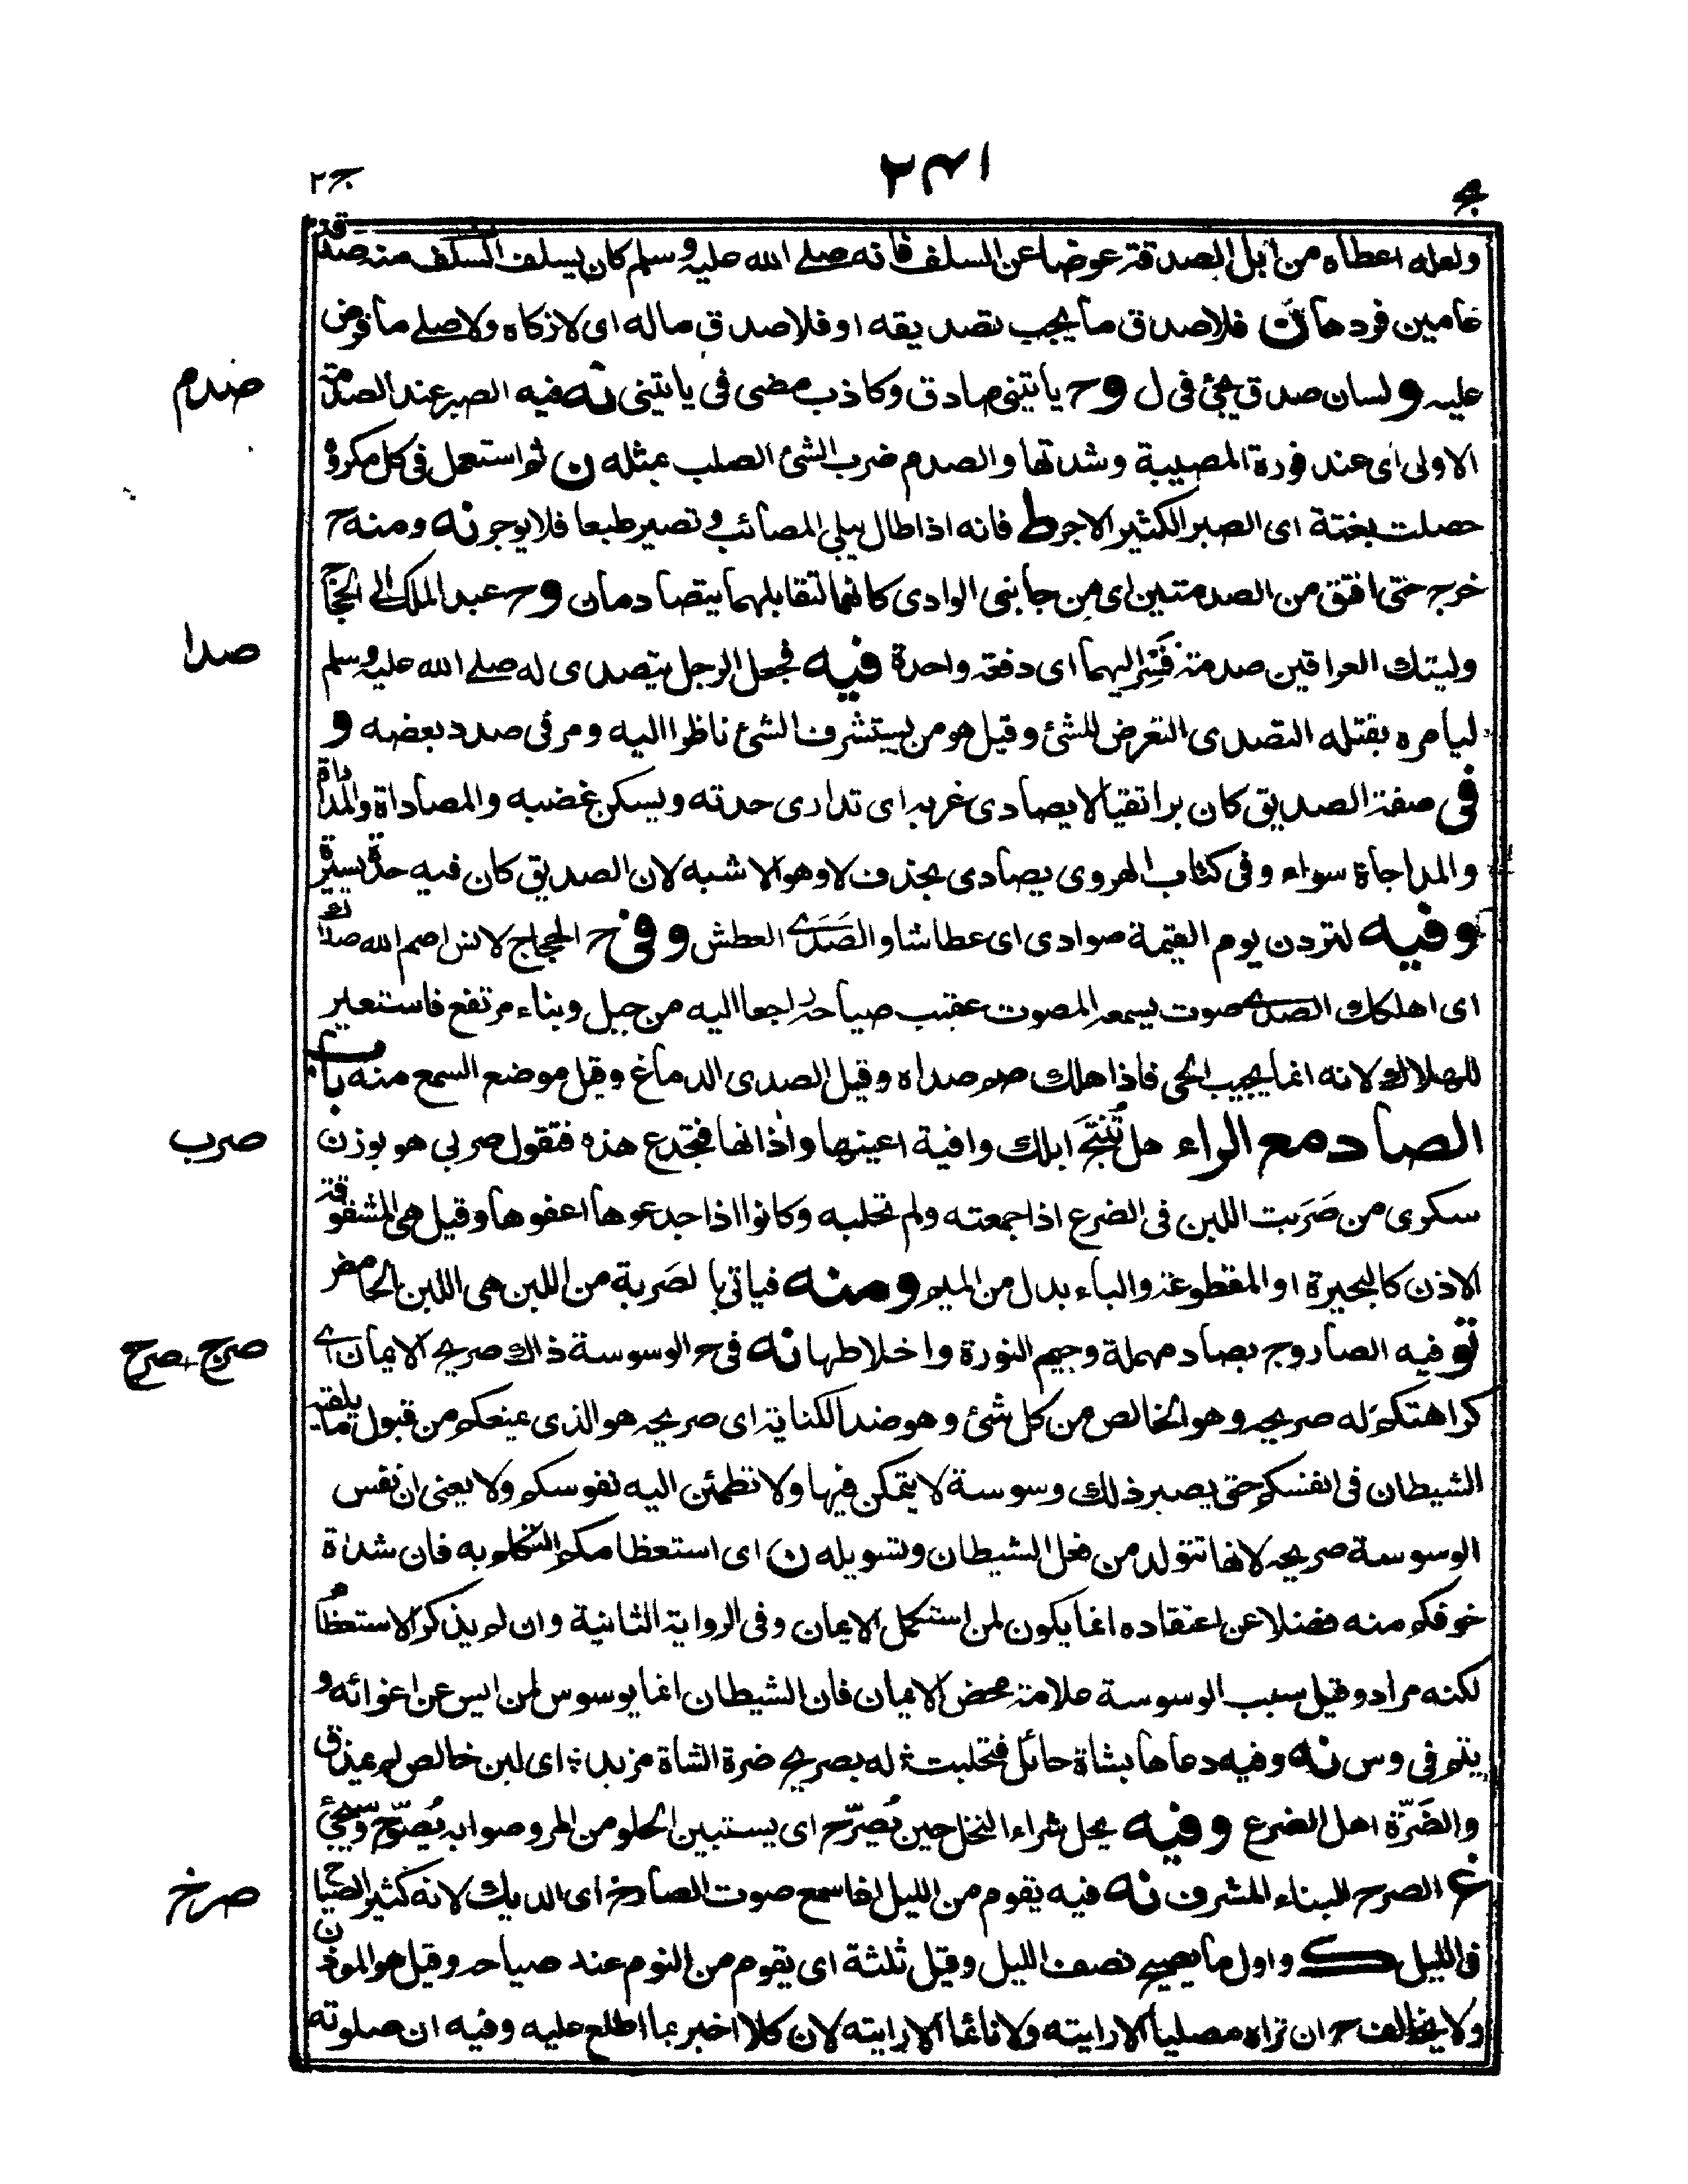 ج ٢
٢٤١
ولعله اعطاه من ابل الصدقة عوضا عن السلف فانه صلى الله عليه وسلم كان يسلف السلف منه صدقة
عامين فردها ن فلا صدق ما يجب تصديقه او فلا صدق ماله اى لا زكاه ولا صلے ما فرض
عليه ولسان صدق يجئ فى ل وح ياتينى صادق وكاذب مضى فى ياتينى نه فيه الصبر عند الصدمة
صدم
الاولى اى عند فورة المصيبة وشدتها والصدم ضرب الشئ الصلب بمثله ن ثم استعمل فى كل مكروه
حصلت بغتة اى الصبر الكثير الاجر ط فانه اذا طال يبلى المصائب وتصير طبعا فلا يوجر نه ومنه ح
خرج حتى افتق من الصدمتين اى من جانبى الوادى كانهما لتقابلهما يتصادمان وح عبد الملك الى الحجاج
صدا
وليتك العراقين صدمة فسر اليهما اى دفعة واحدة فيه فجعل الرجل يتصدى له صلے الله عليه وسلم
ليامره بقتله التصدى التعرض للشئ وقيل هو من يستشرف الشئ ناظرا اليه ومر فى صدد بعضه و
فى صفة الصديق كان برا تقيا لا يصادى غربه اى تدارى حدته ويسكن غضبه والمصاداة والمداراة
والمداجاة سواء وفى كتاب الهروى يصادى بحذف لا وهو الاشبه لان الصديق كان فيه حدة يسيرة
وفيه لتردن يوم القيمة صوادى اى عطاشا والصَدَے العطش وفى ح الحجاج لانس اصم الله صداك
اى اهلكك الصدے صوت يسمعه المصوت عقيب صياحه راجعا اليه من جبل وبناء مرتفع فاستعير
للهلاك لانه انما يجيب الحى فاذا هلك صم صداه وقيل الصدى الدماغ وقيل موضع السمع منه باب
الصاد مع الراء هل تُنتَج ابلك وافية اعينها واذانها فتجدع هذه فتقول صربى هو بوزن
صرب
سكرى من صَرَبت اللبن فى الضرع اذا جمعته ولم تحلبه وكانوا اذا جدعوها اعفوها وقيل هى المشقوقة
الاذن كالبحيرة او المقطوعة والباء بدل من الميم ومنه فياتى بالصَربة من اللبن هى اللبن الحامض
تو فيه الصاروج بصاد مهملة وجيم النورة واخلاطها نه فى ح الوسوسة ذاك صريح الايمان اے
صرج صرح
كراهتكم له صريحه وهو الخالص من كل شئ وهو ضد الكناية اى صريحه هو الذى يمنعكم من قبول ما يلقيه
الشيطان فى انفسكم حتى يصير ذلك وسوسة لا يتمكن فيها ولا تطمئن اليه نفوسكم ولا يعنى ان نفس
الوسوسة صريحه لانها تتولد من فعل الشيطان وتسويله ن اى استعظامكم التكلم به فان شدة
خوفكم منه فضلا عن اعتقاده انما يكون لمن استكمل الايمان وفى الرواية الثانية وان لم يذكر الاستعظام
لكنه مراد وقيل سبب الوسوسة علامة محض الايمان فان الشيطان انما يوسوس لمن ايس عن اغوائه و
يتم فى وس نه وفيه دعاها بشاة حائل فتحلبت له بصريح ضرة الشاة مزبد اى لبن خالص لم يمذق
والضَرّة اهل الضرع وفيه يحل شراء النخل حين يُصرّح اى يستبين الحلو من المر وصوابه يُصوّح وسيجئ
غ الصرح البناء المشرف نه فيه يقوم من الليل اذا سمع صوت الصارخ اى الديك لانه كثير الصياح
صرخ
فى الليل ك واول ما يصيح نصف الليل وقيل ثلثة اى يقوم من النوم عند صياحه وقيل هو الموذن
ولا يخالف ح ان تراه مصليا الا رايته ولا نائما الا رايته لان كلا اخبر بما اطلع عليه وفيه ان صلوته